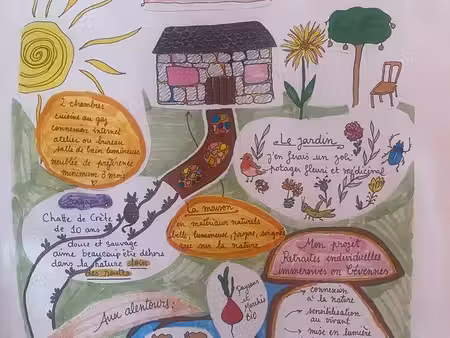 2 chambres
cuisine au gaz
connexion internet
atelier ou bureau
salle de bain lumineuse
meublée de préférence
minimum 3 mois
Le jardin
j'en ferais un joli
potager fleuri et médicinal
La maison
en matériaux naturels
belle, lumineuse, propre, soignée
vue sur la nature
Chatte de Crète
de 10 ans
douce et sauvage
aime beaucoup être dehors
dans la nature loin
des routes
Mon projet
Retraites individuelles
immersives en Cévennes
connexion
à la nature
sensibilisation
au vivant
mise en lumière
Aux alentours :
paysans
et
Marchés
BIO